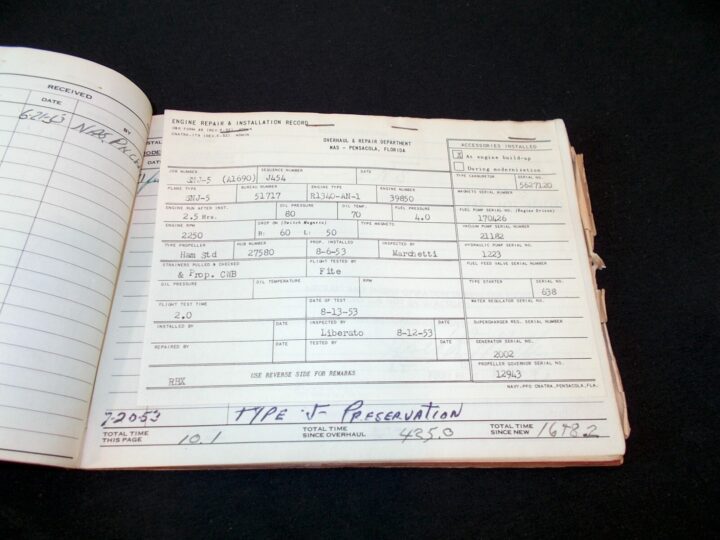 RECEIVED
DATE
BY
6-21-53
NAS
ENGINE REPAIR & INSTALLATION RECORD
OVERHAUL & REPAIR DEPARTMENT
NAS - PENSACOLA, FLORIDA
ACCESSORIES INSTALLED
At engine build-up
During modernization
JOB NUMBER SEQUENCE NUMBER DATE
SNJ-5 (A1690) J454
TYPE CARBURETOR SERIAL NO.
5627120
PLANE TYPE BUREAU NUMBER ENGINE TYPE ENGINE NUMBER
SNJ-5 51717 R1340-AN-1 39850
MAGNETO SERIAL NUMBER
ENGINE RUN AFTER INST. OIL PRESSURE OIL TEMP. FUEL PRESSURE
2.5 Hrs. 80 70 4.0
FUEL PUMP SERIAL NO. (Engine Driven)
170426
ENGINE RPM DROP ON (Switch Magneto) TYPE MAGNETO
2250 R: 60 L: 50
VACUUM PUMP SERIAL NUMBER
21182
TYPE PROPELLER HUB NUMBER PROP. INSTALLED INSPECTED BY
Ham Std 27580 8-6-53 Marchetti
HYDRAULIC PUMP SERIAL NUMBER
1223
STRAINERS PULLED & CHECKED FLIGHT TESTED BY
& Prop. CWB Fite
FUEL FEED VALVE SERIAL NUMBER
OIL PRESSURE OIL TEMPERATURE RPM
TYPE STARTER SERIAL NO.
638
FLIGHT TEST TIME DATE OF TEST
2.0 8-13-53
WATER REGULATOR SERIAL NO.
INSTALLED BY DATE INSPECTED BY DATE
Liberato 8-12-53
SUPERCHARGER REG. SERIAL NUMBER
REPAIRED BY DATE TESTED BY DATE
GENERATOR SERIAL NO.
2002
PROPELLER GOVERNOR SERIAL NO.
12943
RBX USE REVERSE SIDE FOR REMARKS
NAVY-PPO CNATRA, PENSACOLA, FLA.
7-20-53 TYPE J- PRESERVATION
TOTAL TIME THIS PAGE 10.1 TOTAL TIME SINCE OVERHAUL 435.0 TOTAL TIME SINCE NEW 1698.2